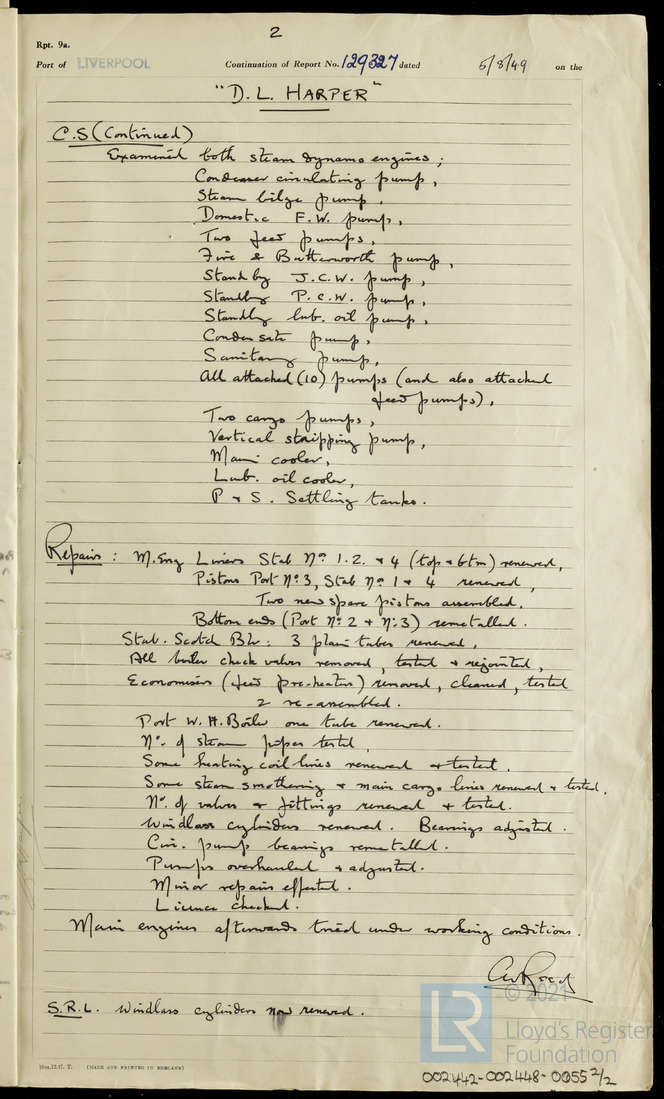 2
Rpt. 9a.
Port of LIVERPOOL Continuation of Report No. 129327 dated 5/8/49 on the
"D. L. HARPER"
C.S (Continued)
Examined both steam dynamo engines ;
Condenser circulating pump,
Steam bilge pump,
Domestic F.W. pump,
Two feed pumps,
Fire & Butterworth pump,
Stand by J.C.W. pump,
Standby P.C.W. pump,
Standby lub. oil pump,
Condensate pump,
Sanitary pump,
All attached (10) pumps (and also attached
feed pumps),
Two cargo pumps,
Vertical stripping pump,
Main cooler,
Lub. oil cooler,
P & S. Settling tanks.
Repairs : M.Eng Liners Stab Nº 1. 2. & 4 (top & btm) renewed,
Pistons Port Nº 3, Stab Nº 1 & 4 renewed,
Two new spare pistons assembled.
Bottom ends (Port Nº 2 & Nº 3) remetalled.
Stab. Scotch Blr: 3 plain tubes renewed,
All boiler check valves removed, tested & rejointed,
Economisers (feed pre-heaters) removed, cleaned, tested
& re-assembled.
Port W. H. Boiler one tube renewed.
Nº. of steam pipes tested,
Some heating coil lines renewed & tested.
Some steam smothering & main cargo lines renewed & tested.
Nº. of valves & fittings renewed & tested.
Windlass cylinders renewed. Bearings adjusted.
Circ. pump bearings remetalled.
Pumps overhauled & adjusted.
Minor repairs effected.
Licence checked.
Main engines afterwards tried under working conditions.
S.R.L. Windlass cylinders now renewed.
© 2021
LR
Lloyd's Register
Foundation
10m,12.47. T. (MADE AND PRINTED IN ENGLAND)
002442-002448-0055 2/2